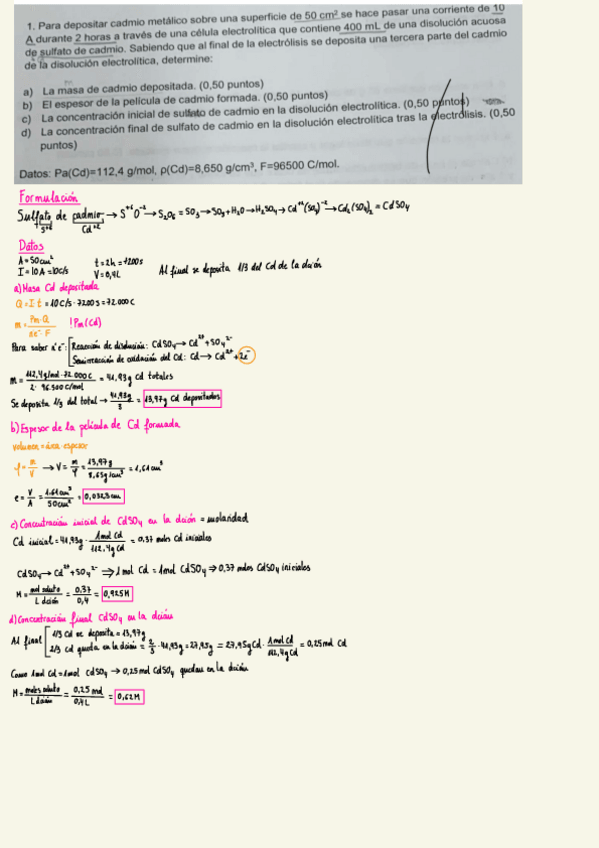 1. Para depositar cadmio metálico sobre una superficie de 50 cm² se hace pasar una corriente de 10
A durante 2 horas a través de una célula electrolítica que contiene 400 mL de una disolución acuosa
de sulfato de cadmio. Sabiendo que al final de la electrólisis se deposita una tercera parte del cadmio
de la disolución electrolítica, determine:
a) La masa de cadmio depositada. (0,50 puntos)
b) El espesor de la película de cadmio formada. (0,50 puntos)
c) La concentración inicial de sulfato de cadmio en la disolución electrolítica. (0,50 puntos)
d) La concentración final de sulfato de cadmio en la disolución electrolítica tras la electrólisis. (0,50
puntos)
Datos: Pa(Cd)=112,4 g/mol, ρ(Cd)=8,650 g/cm³, F=96500 C/mol.
Formulación
Sulfato de cadmio → S⁺⁶O⁻² → S₂O₆ = SO₃ → SO₃ + H₂O → H₂SO₄ → Cd⁺²(SO₄)⁻² → Cd₂(SO₄)₂ = CdSO₄
S⁺⁶ Cd⁺²
Datos
A = 50cm² t = 2h = 7200s
I = 10A = 10C/s V = 0,4L Al final se deposita 1/3 del Cd de la dción
a) Masa Cd depositada
Q = I·t = 10C/s · 7200s = 72.000C
m = Pm·Q / nºe⁻·F !Pm(Cd)
Para saber nºe⁻: Reacción de disolución: CdSO₄ → Cd²⁺ + SO₄²⁻
Semirreacción de oxidación del Cd: Cd → Cd²⁺ + 2e⁻
m = 112,4g/mol · 72.000C / 2 · 96.500C/mol = 41,93g Cd totales
Se deposita 1/3 del total → 41,93g / 3 = 13,97g Cd depositados
b) Espesor de la película de Cd formada
volumen = área · espesor
ρ = m/V → V = m/ρ = 13,97g / 8,65g/cm³ = 1,61cm³
e = V/A = 1,61cm³ / 50cm² = 0,0323cm
c) Concentración inicial de CdSO₄ en la dción = molaridad
Cd inicial = 41,93g · 1mol Cd / 112,4g Cd = 0,37 moles Cd iniciales
CdSO₄ → Cd²⁺ + SO₄²⁻ ⇒ 1mol Cd = 1mol CdSO₄ ⇒ 0,37 moles CdSO₄ iniciales
M = mol soluto / L dción = 0,37 / 0,4 = 0,925M
d) Concentración final CdSO₄ en la dción
Al final 1/3 Cd se deposita = 13,97g
2/3 Cd queda en la dción = 2/3 · 41,93g = 27,95g = 27,95g Cd · 1mol Cd / 112,4g Cd = 0,25mol Cd
Como 1mol Cd = 1mol CdSO₄ → 0,25mol CdSO₄ quedan en la dción
M = moles soluto / L dción = 0,25mol / 0,4L = 0,62M